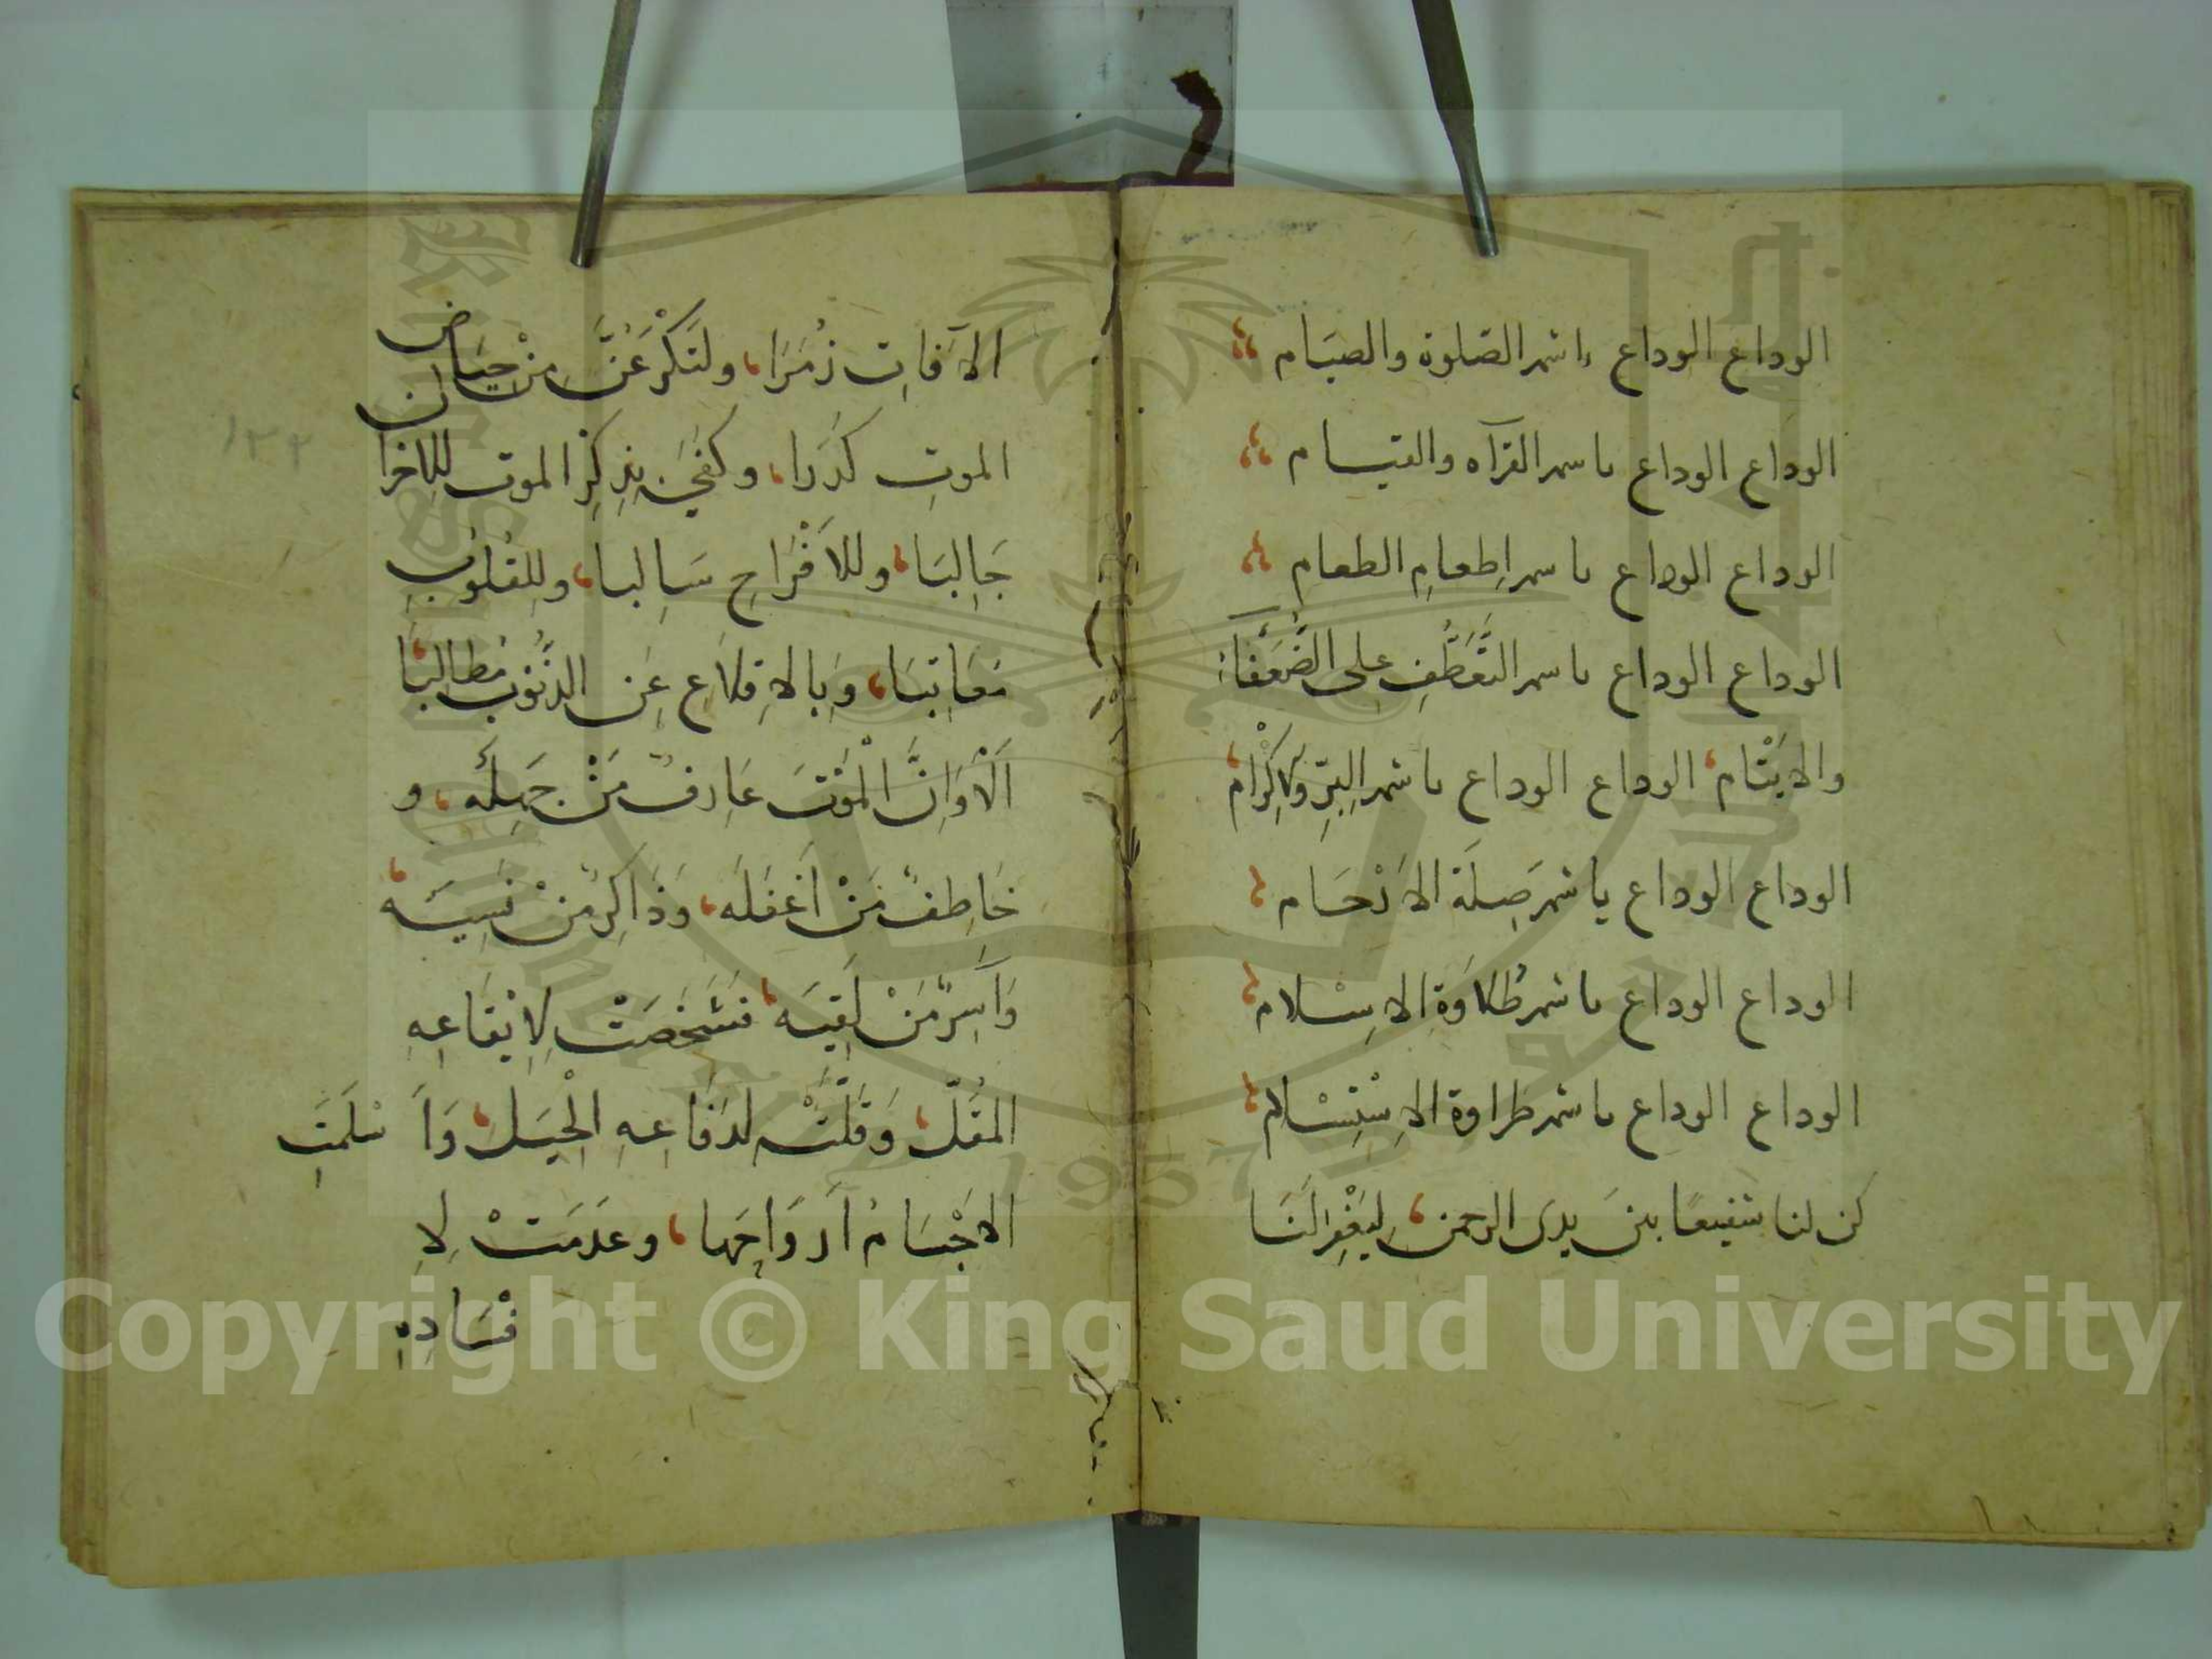 الوداع الوداع يا شهر الصلوة والصيام
الوداع الوداع يا شهر القرآن والقيام
الوداع الوداع يا شهر اِطعامِ الطعام
الوداع الوداع يا شهر التَّعَطُّفِ على الضُّعَفَآءِ
والايْتَام الوداع الوداع يا شهر البِرِّ والاِكْرام
الوداع الوداع يا شهر صِلَة الاَرْحَام
الوداع الوداع يا شهر طُلاوَةِ الاِسْلام
الوداع الوداع يا شهر طراوة الاِسْتِسْلام
كن لنا شفيعًا بين يدى الرحمن لِيَغْفِرَ لَنَا
الآفَاتِ زُمَرَا ولَتَكْرَعُنَّ مِنْ حِيَاضِ
الموتِ كَدَرَا وكفَى بِذِكِرِ الموت للاحزان
جَالِبَا وللاَفْرَاحِ سَالِبا ولِلقُلُوبِ
مُعَاتِبَا وَبالاِقِلاَعِ عَن الذُّنُوْبِ مُطالِبًا
اَلَا وَاِنَّ الْمَوْتَ عَارِفٌ مَنْ جَهِلَه و
خَاطِفٌ مَنْ اَغفَلَه وَذَاكِرٌ مَنْ نَسِيَه
وَآسِرٌ مَنْ لَقِيَه فشَخَصَتْ لِاِيْقَاعِهِ
المُقَلُ وَقَلَّتْ لدفَاعِهِ الْحِيَل وَاَسْلَمَتِ
الاَجْسَامُ اَرْوَاحَها وعَدمَتْ لِاِ
فْسَادِهِ
١٢٢
Copyright © King Saud University
1957